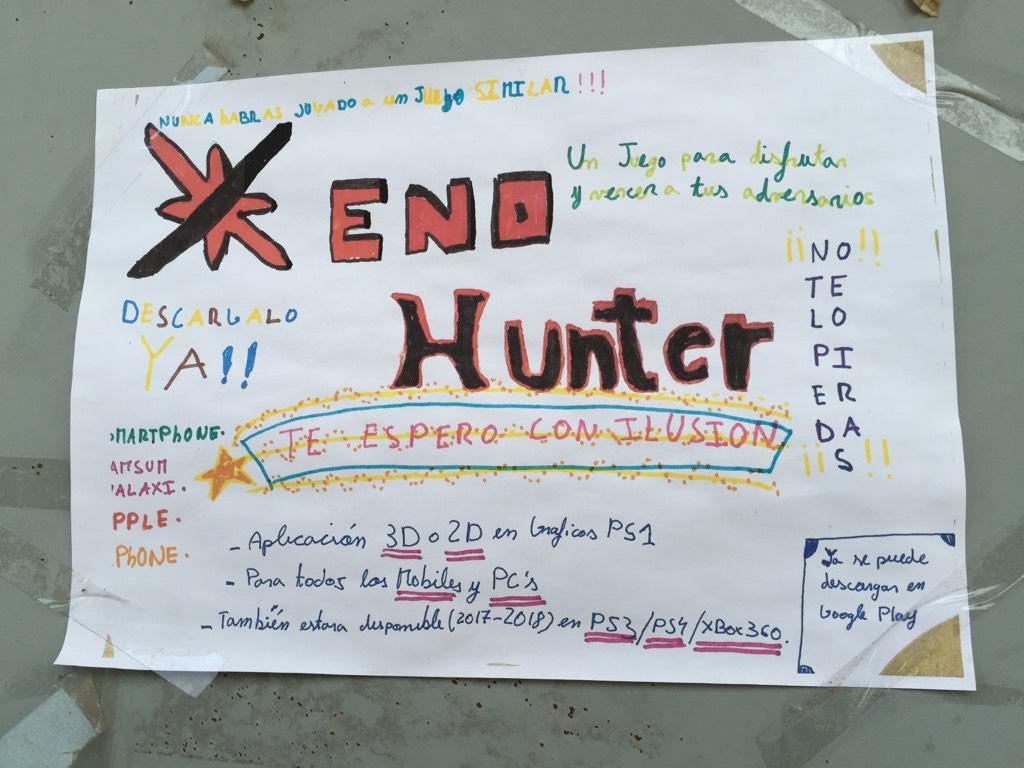 NUNCA hABRAS JUGADO a un JUEgo SIMILAR!!!
XENO
Hunter
Un Juego para disfrutar
y vencer a tus adversarios
¡¡NO!!
TE
LO
PI
ER
DA
¡¡S!!
DESCARGALO
YA!!
TE ESPERO CON ILUSION
SMARTPHONE.
AMSUM
GALAXI.
PPLE.
PhONE.
- Aplicación 3D o 2D en Graficos PS1
- Para todos los Mobiles y PC's
- También estara disponible (2017-2018) en PS3/PS4/XBox360.
Ya se puede
descargar en
Google Play